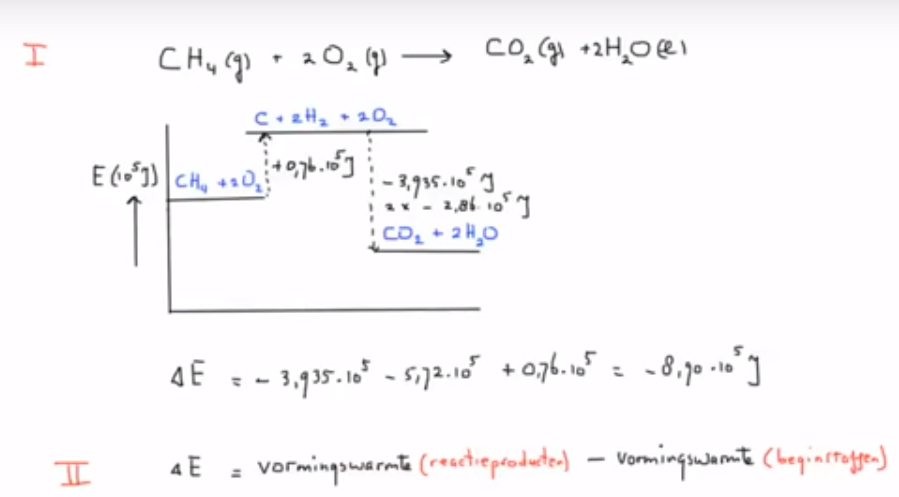 I CH₄(g) + 2O₂(g) → CO₂(g) + 2H₂O(l)
C + 2H₂ + 2O₂
E(10⁵J) CH₄ + 2O₂ +0,76.10⁵J
-3,935.10⁵J
2x -2,86.10⁵J
CO₂ + 2H₂O
ΔE = -3,935.10⁵ - 5,72.10⁵ + 0,76.10⁵ = -8,90.10⁵J
II ΔE = vormingswarmte (reactieproducten) - vormingswarmte (beginstoffen)